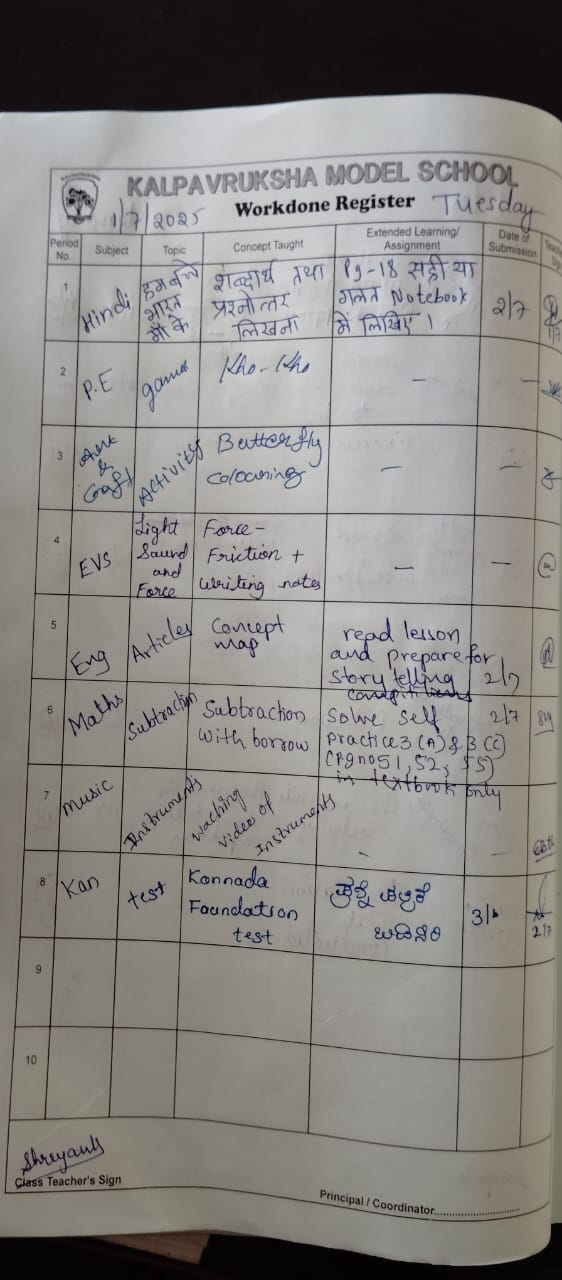 KALPAVRUKSHA MODEL SCHOOL
1/7/2025 Workdone Register Tuesday
Period No. Subject Topic Concept Taught Extended Learning/ Assignment Date of Submission
1 Hindi हम बच्चे भारत माँ के शब्दार्थ तथा प्रश्नोत्तर लिखना Pg-18 सही या गलत Notebook में लिखिए । 2/7
2 P.E games Kho-Kho — —
3 Art & Craft Activity Butterfly colouring — —
4 EVS Light Saund and Force Force - Friction + writing notes — —
5 Eng Articles Concept map read lesson and prepare for story telling 2/7
6 Maths Subtraction Subtraction with borrow Solve self practice 3 (A) & 3 (C) (Pg no 51, 52, 55) in textbook only 2/7
7 Music Instruments waching video of Instruments - -
8 Kan test Kannada Foundation test ಪ್ರಶ್ನೆ ಪತ್ರಿಕೆ 3/ 2/7
9
10
Shreyanh
Class Teacher's Sign
Principal / Coordinator